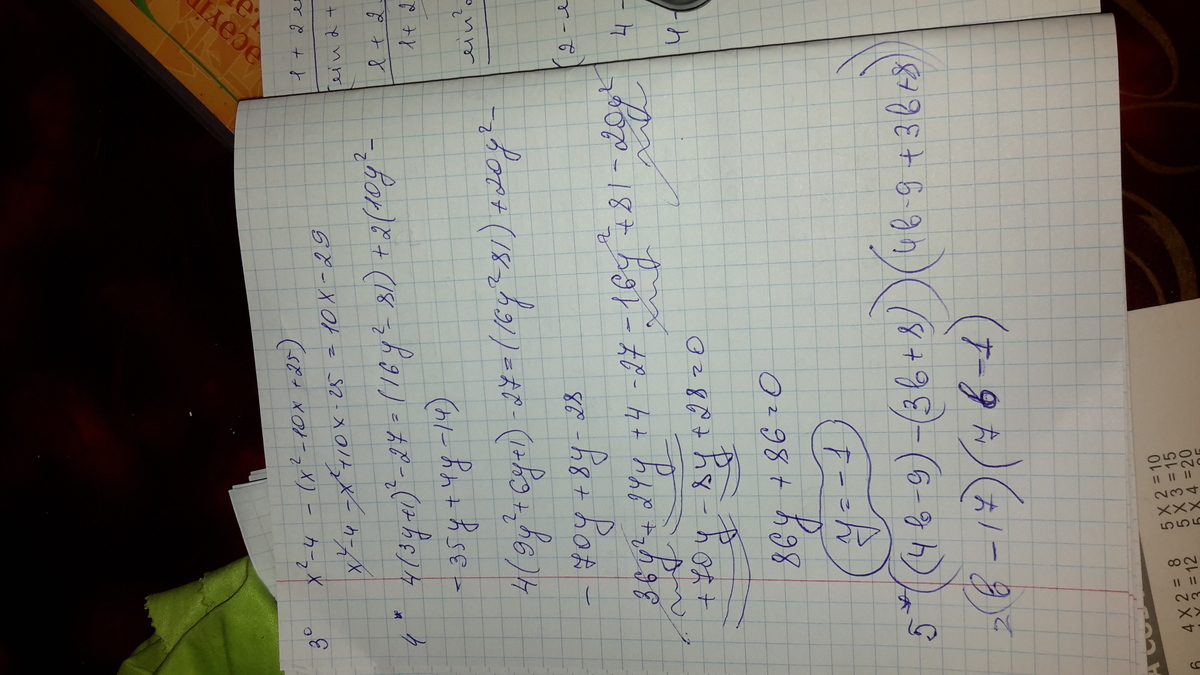 3° x² - 4 - (x² - 10x + 25)
x² - 4 - x² + 10x - 25 = 10x - 29
4* 4(3y+1)² - 27 = (16y² - 81) + 2(10y² -
- 35y + 4y - 14)
4(9y² + 6y + 1) - 27 = (16y² - 81) + 20y² -
- 70y + 8y - 28
36y² + 24y + 4 - 27 - 16y² + 81 - 20y²
+ 70y - 8y + 28 = 0
86y + 86 = 0
y = -1
5* ((4b - 9) - (3b + 8))(4b - 9 + 3b + 8)
= (b - 17)(7b - 1)
4 x 2 = 8 5 x 2 = 10
4 x 3 = 12 5 x 3 = 15
5 x 4 = 20